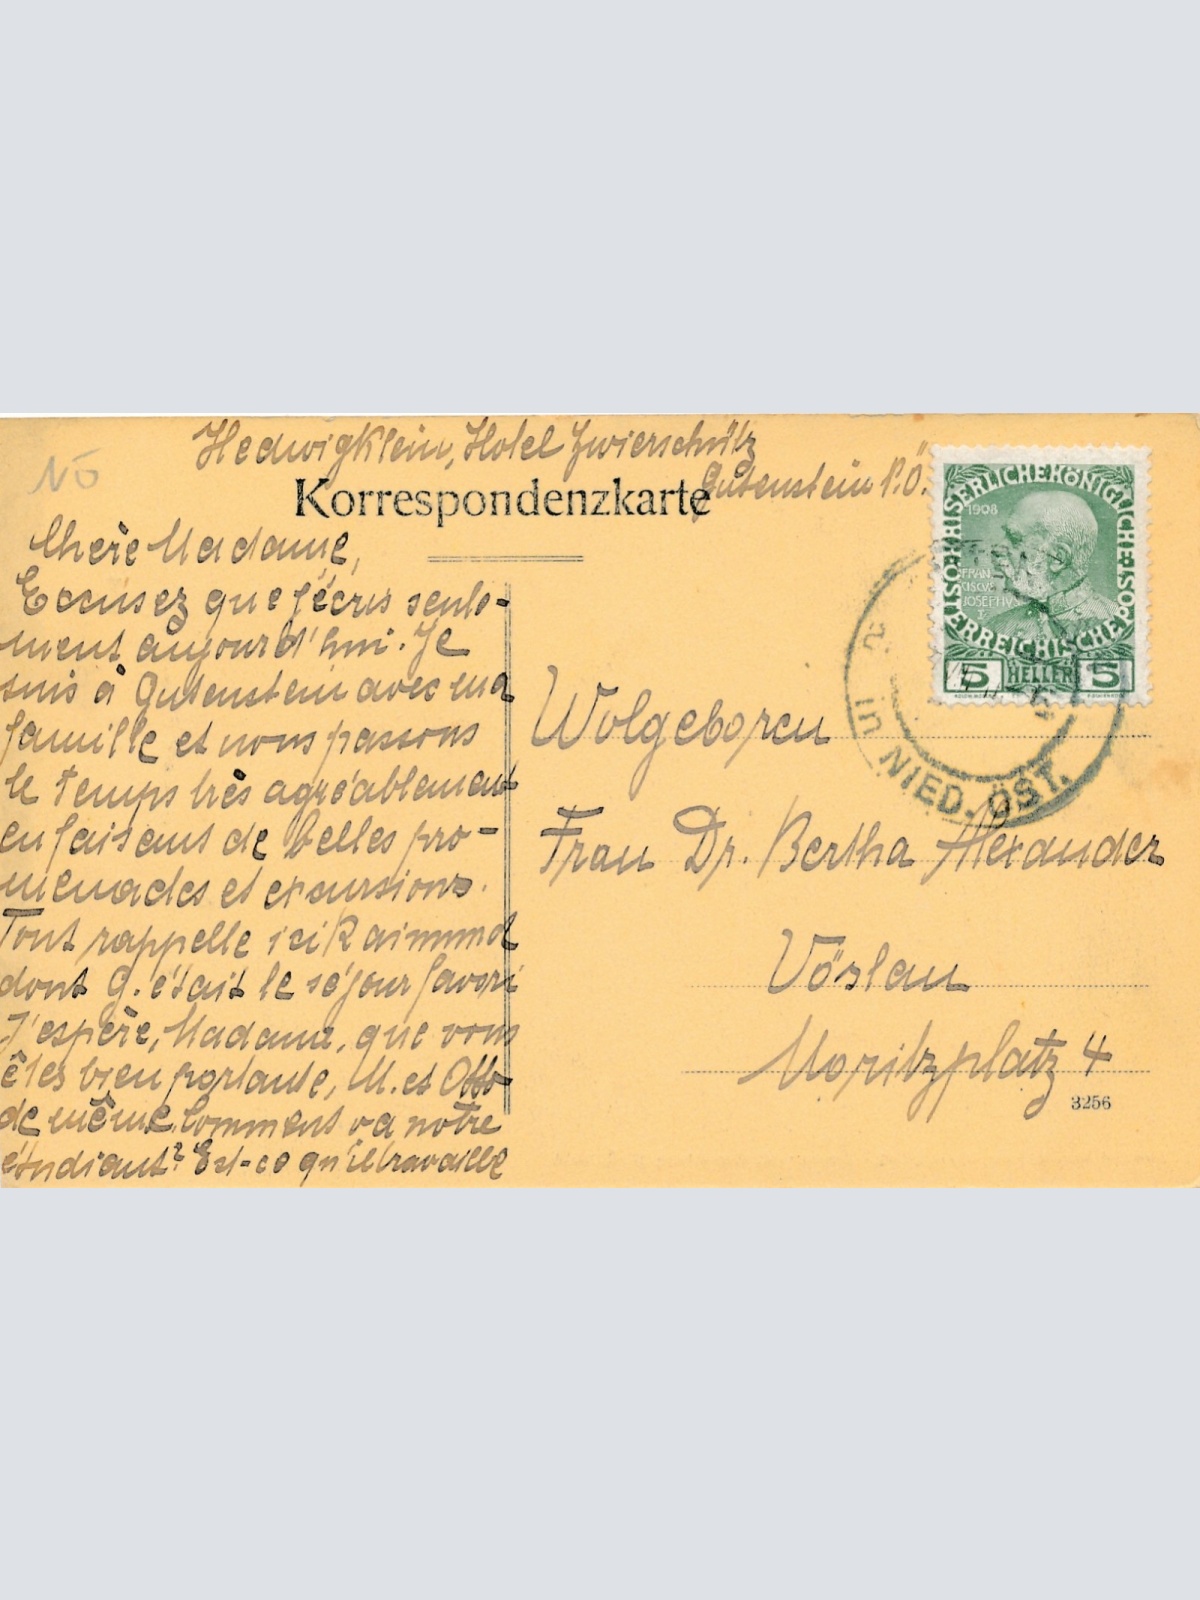 NÖ
Hedwig Klein, Hotel Zwierschütz
Gutenstein N.Ö.
Korrespondenzkarte
Chère Madame,
Excusez que j'écris seule-
ment aujourd'hui. Je
suis à Gutenstein avec ma
famille et nous passons
le temps très agréablement
en faisant de belles pro-
menades et excursions.
Tout rappelle ici Raimund
dont G. était le séjour favori
J'espère, Madame, que vous
êtes bien portante, M. et Otto
de même. Comment va notre
étudiant? Est-ce qu'il travaille
KAISERLICHEKÖNIGLICHE ÖSTERREICHISCHE POST
1908
FRAN
CISCVS
JOSEPHVS
I.
5 HELLER 5
in NIED. ÖST.
Wolgeboren
Frau Dr. Bertha Alexander
Vöslau
Moritzplatz 4
3256